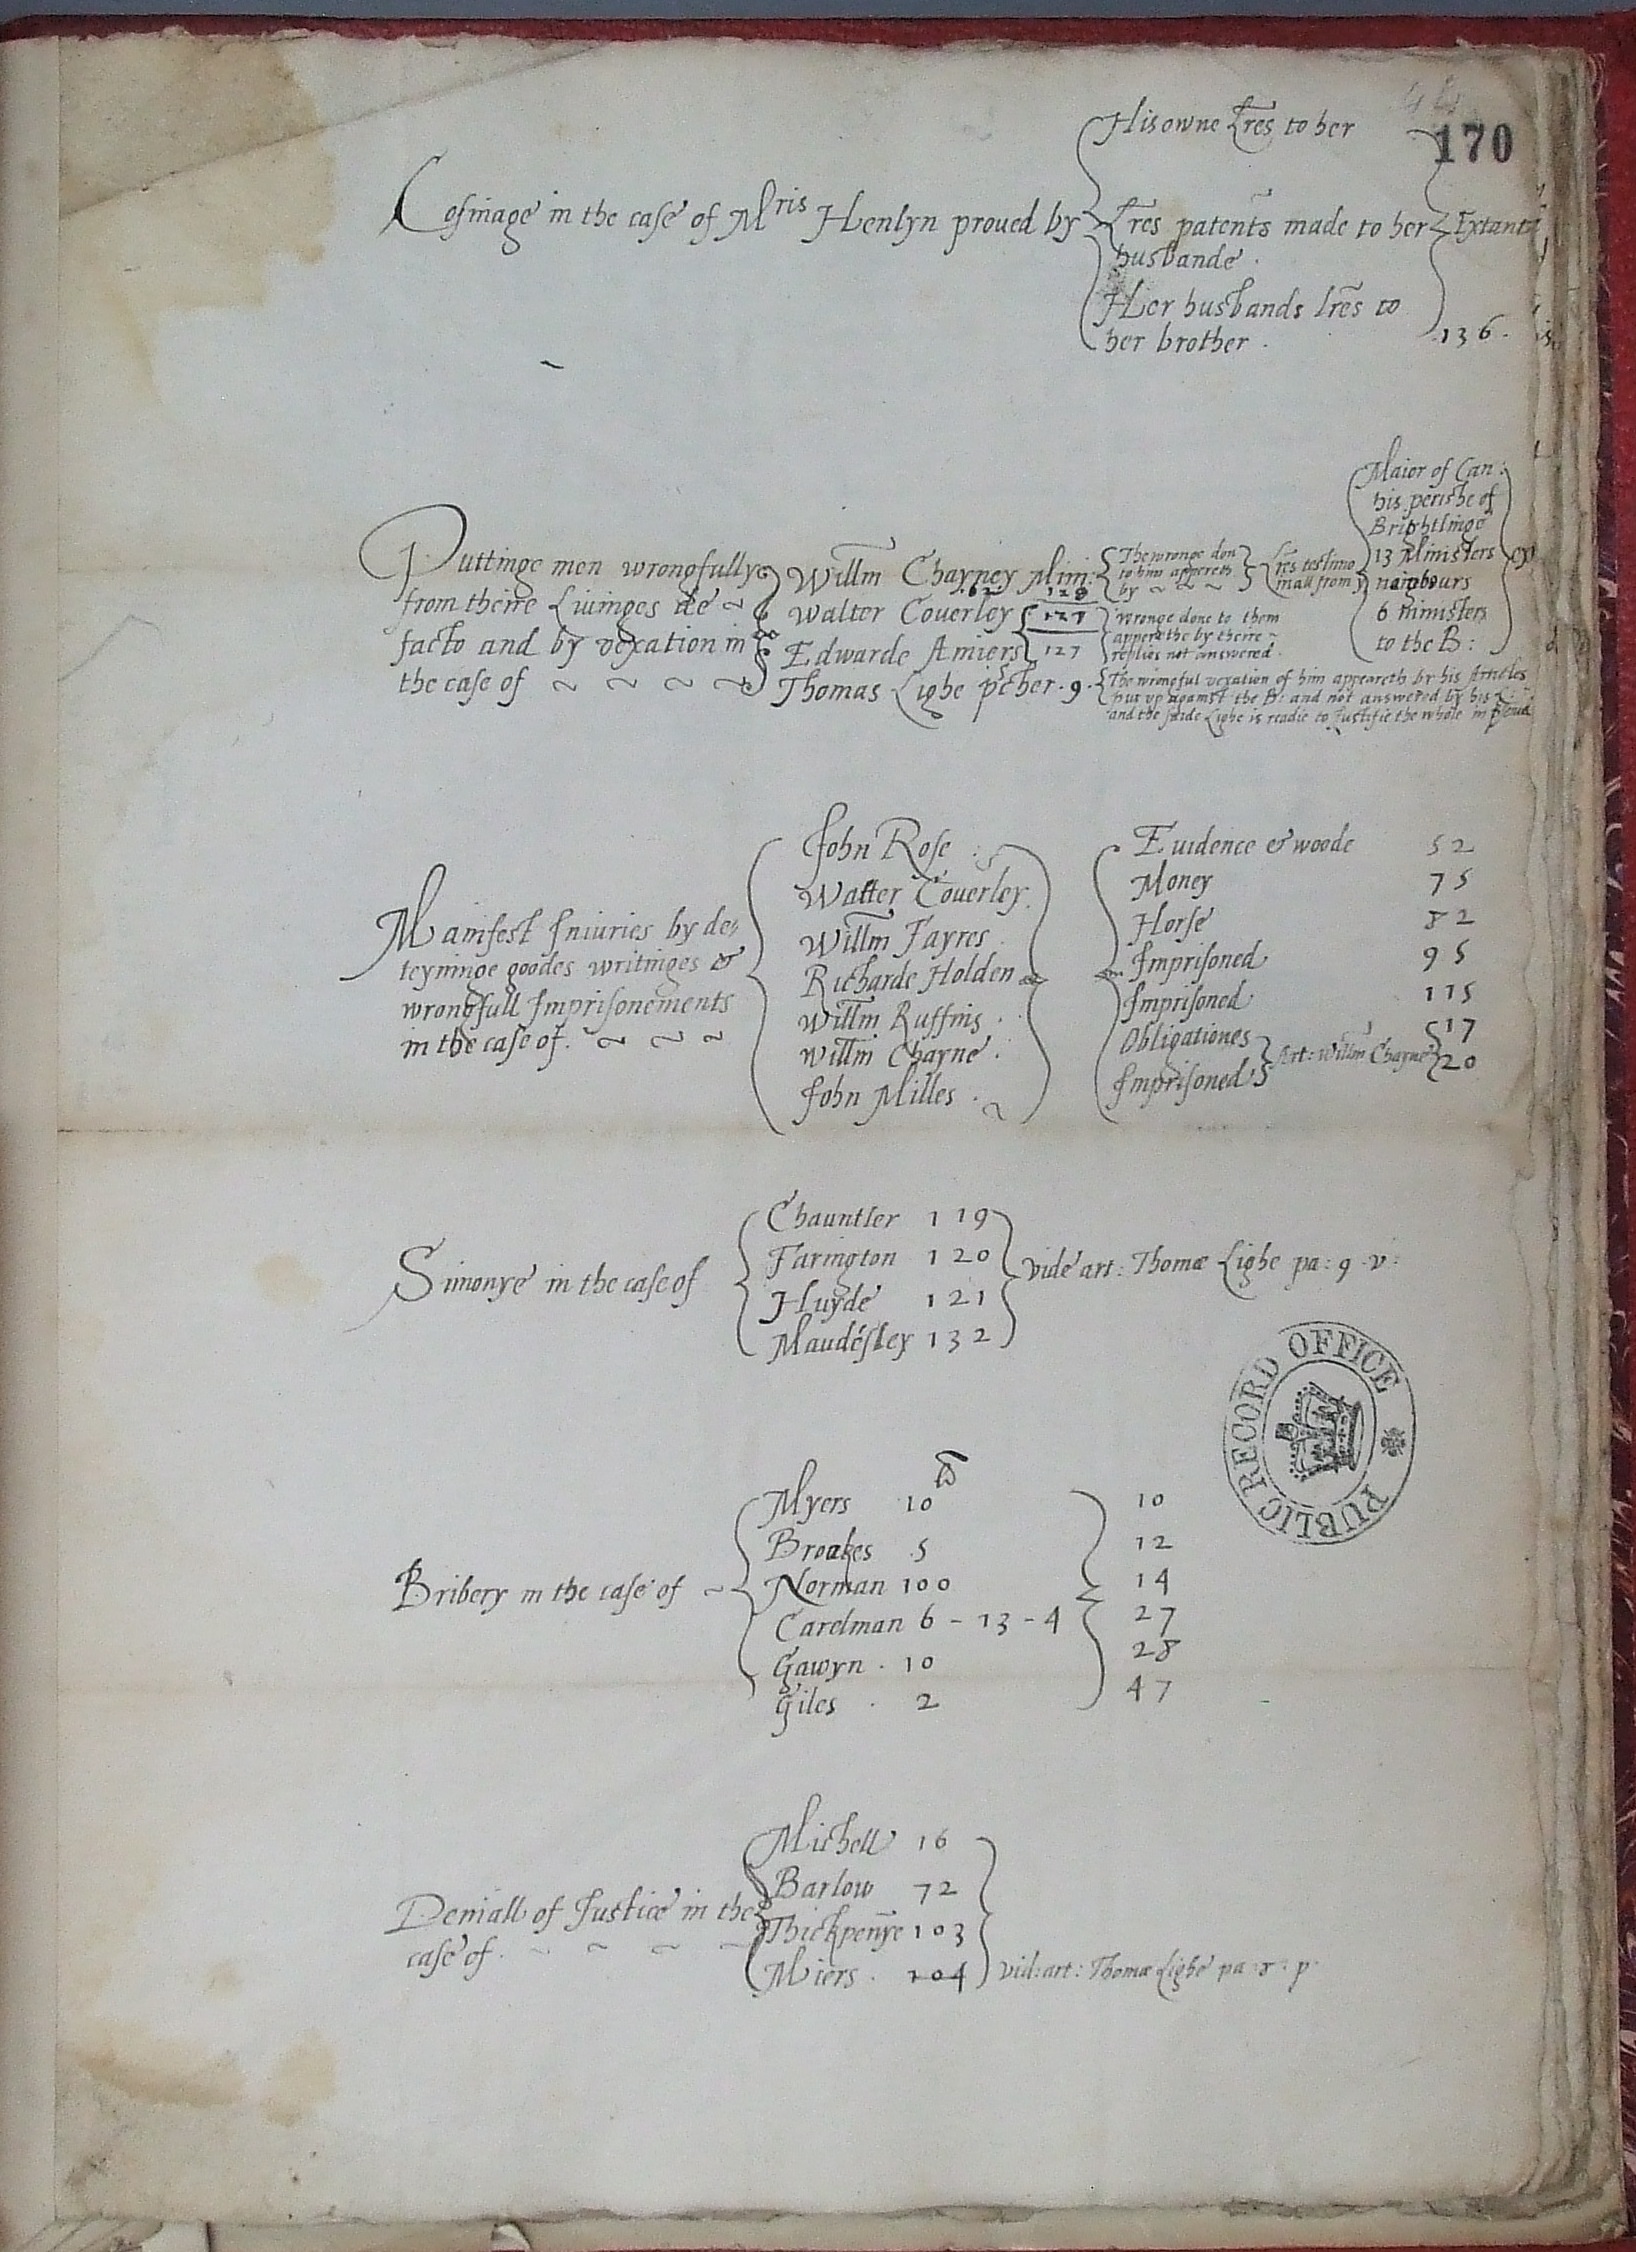 170
His owne Lr̃es to her
Cosinage in the case of Mris Henlyn proued by
Lr̃es patents made to her
husbande .
Extant
Her husbands lr̃es to
her brother .
136 .
Puttinge men wrongfullye
from theire Liuinges de
facto and by vexation in
the case of
Willm̃ Chayney Min:
62 128
The wronge don
to him appereth
by
Lr̃es testimo
niall from
Maior of Can:
his perishe of
Brightlinge
13 Ministers
naigbours
6 ministers
to the B:
Walter Couerley 127
Edwarde Amiers 127
wronge done to them
apperethe by theire
replies not answered.
Thomas Lighe p̃cher . 9 .
The wrongful vexation of him appeareth by his Articles
put vp against the B: and not answered by his
and the saide Lighe is readie to Justifie the whole in
Manifest Iniuries by de
teyninge goodes writinges &
wrongfull Imprisonements
in the case of.
John Rose Euidence & woode 52
Walter Couerley Money 75
Willm̃ Fayres Horse 82
Richarde Holden Imprisoned 95
Willm̃ Ruffins Imprisoned 115
Willm̃ Chayne Obligationes 17
Art: Willm̃ Chayne
John Milles Imprisoned 20
Simonye in the case of
Chauntler 119
Farington 120
Huyde 121
Maudesley 132
vide art: Thomæ Lighe pa: 9 . v:
Bribery in the case of
Myers 10 10
Broakes 5 12
Norman 100 14
Carelman 6 - 13 - 4 27
Gawyn . 10 28
Giles . 2 47
Deniall of Justice in the
case of .
Michell 16
Barlow 72
Thickpenỹe 103
Miers . 104
vid: art: Thomæ Lighe pa: 8 : p.
PUBLIC RECORD OFFICE